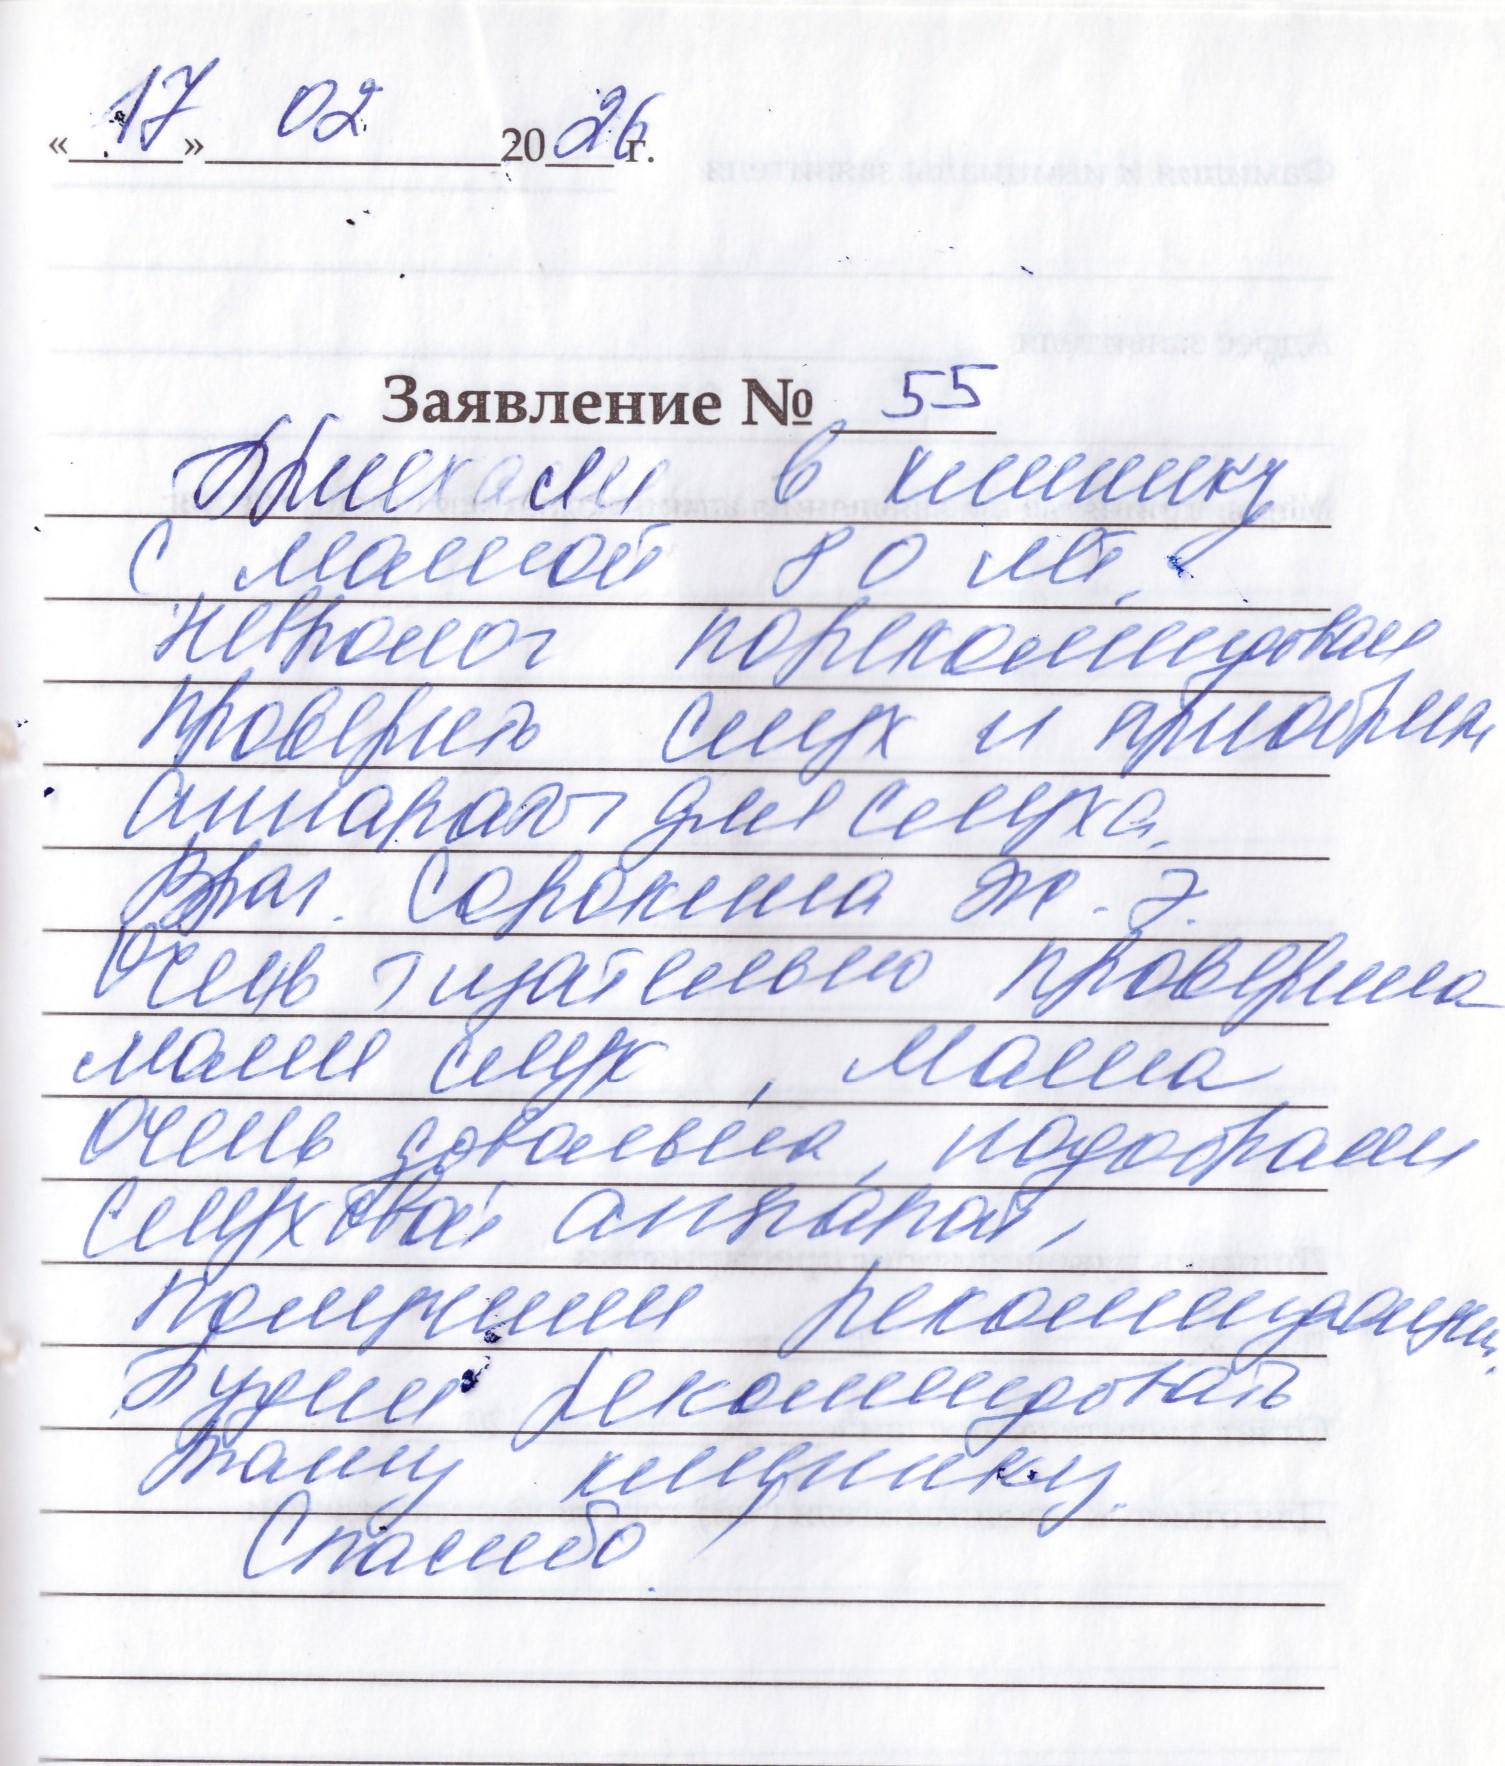 «17» 02 2026 г.
Заявление № 55
Приехали в клинику
с мамой 80 лет,
невролог порекомендовал
проверить слух и приобрести
аппарат для слуха.
Врач Сорокина Ж. Э.
Очень тщательно проверила
маме слух, мама
очень довольна, подобрали
слуховой аппарат,
получили рекомендации.
Будем рекомендовать
Вашу клинику.
Спасибо.